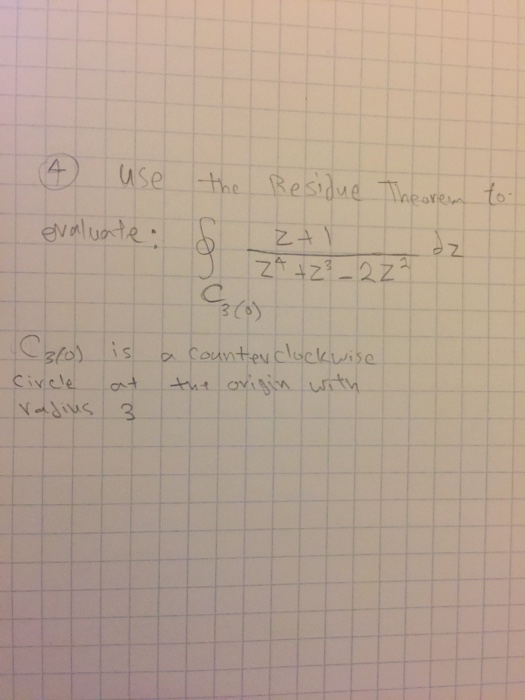 ④ use the Residue Theorem to
evaluate: ∮_{C_3(0)} (z+1)/(z^4+z^3-2z^2) dz
C_3(0) is a counterclockwise
circle at the origin with
radius 3